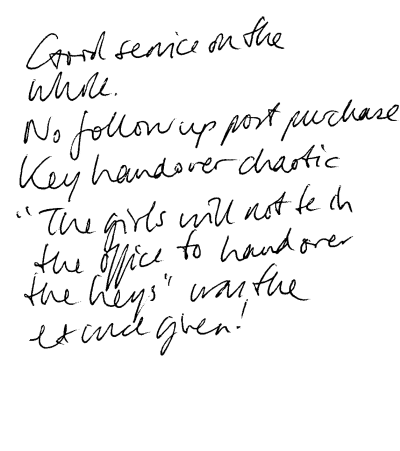 Good service on the
whole.
No follow up post purchase
Key handover chaotic
"The girls will not be in
the office to handover
the keys" was the
excuse given!